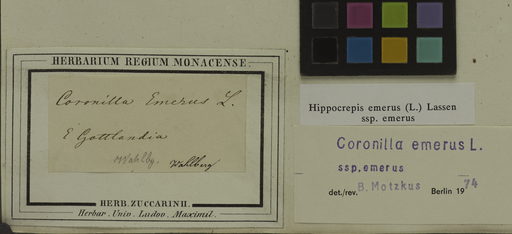 HERBARIUM REGIUM MONACENSE.
Coronilla Emerus L.
E Gottlandia
Wahlbg. Wahlberg
HERB. ZUCCARINII.
Herbar. Univ. Ludov. Maximil.
Hippocrepis emerus (L.) Lassen
ssp. emerus
Coronilla emerus L.
ssp. emerus
det./rev. B. Motzkus Berlin 1974